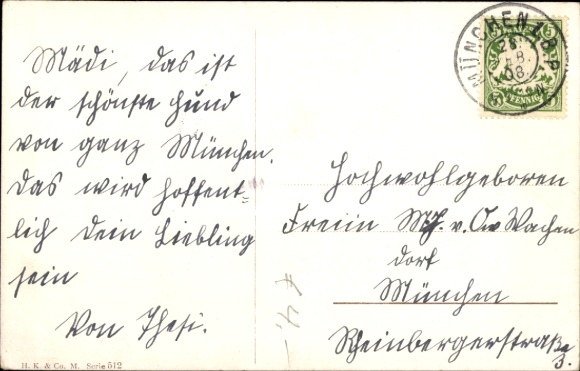 Mädi, das ist
der schönste Hund
von ganz München.
Das wird hoffent-
lich dein Liebling
sein
Von Thesi.
H. K. & Co. M. Serie 512
MÜNCHEN 1. B.P.
5
PFENNIG
Hochwohlgeboren
Freiin v. Ow Wachen
dorf
München
Rheinbergerstraße
3.